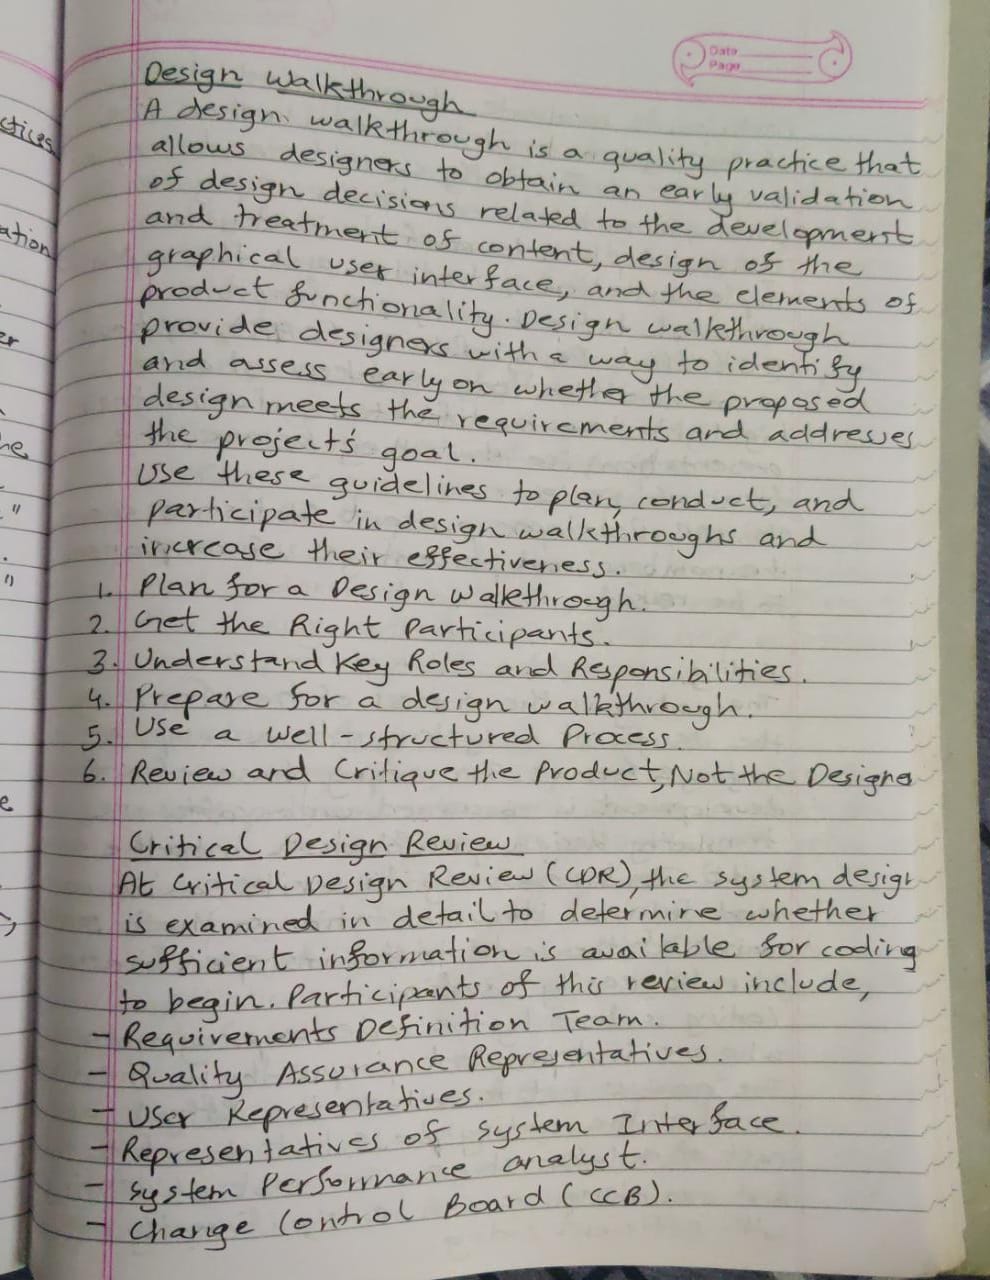 Date
Page
Design Walkthrough
A design walkthrough is a quality practice that
allows designers to obtain an early validation
of design decisions related to the development
and treatment of content, design of the
graphical user interface, and the elements of
product functionality. Design walkthrough
provide designers with a way to identify
and assess early on whether the proposed
design meets the requirements and addresses
the project's goal.
Use these guidelines to plan, conduct, and
participate in design walkthroughs and
increase their effectiveness.
1. Plan for a Design Walkthrough.
2. Get the Right Participants.
3. Understand Key Roles and Responsibilities.
4. Prepare for a design walkthrough.
5. Use a well-structured Process.
6. Review and Critique the Product, Not the Designe
Critical Design Review
At Critical Design Review (CDR), the system desig
is examined in detail to determine whether
sufficient information is available for coding
to begin. Participants of this review include,
- Requirements Definition Team.
- Quality Assurance Representatives.
- User Representatives.
- Representatives of System Interface.
- System Performance analyst.
- Change Control Board (CCB).